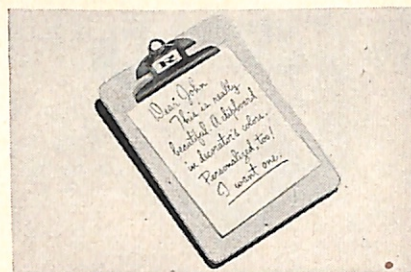 R
Dear John
This is really
beautiful. A clipboard
in decorator's colors.
Personalized, too!
I want one.